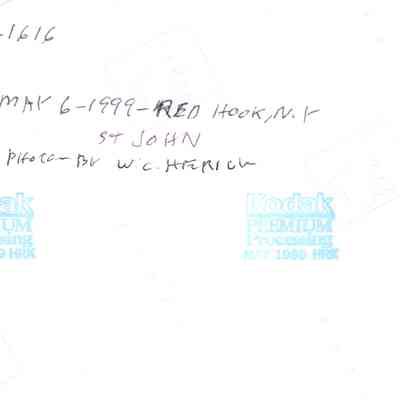 -1616
MAY 6-1999-RED HOOK, N.Y
ST JOHN
PHOTO-BY W.C. HERICK
dak
IUM
sing
9 HRK
Kodak
PREMIUM
Processing
MAY 1999 HRK